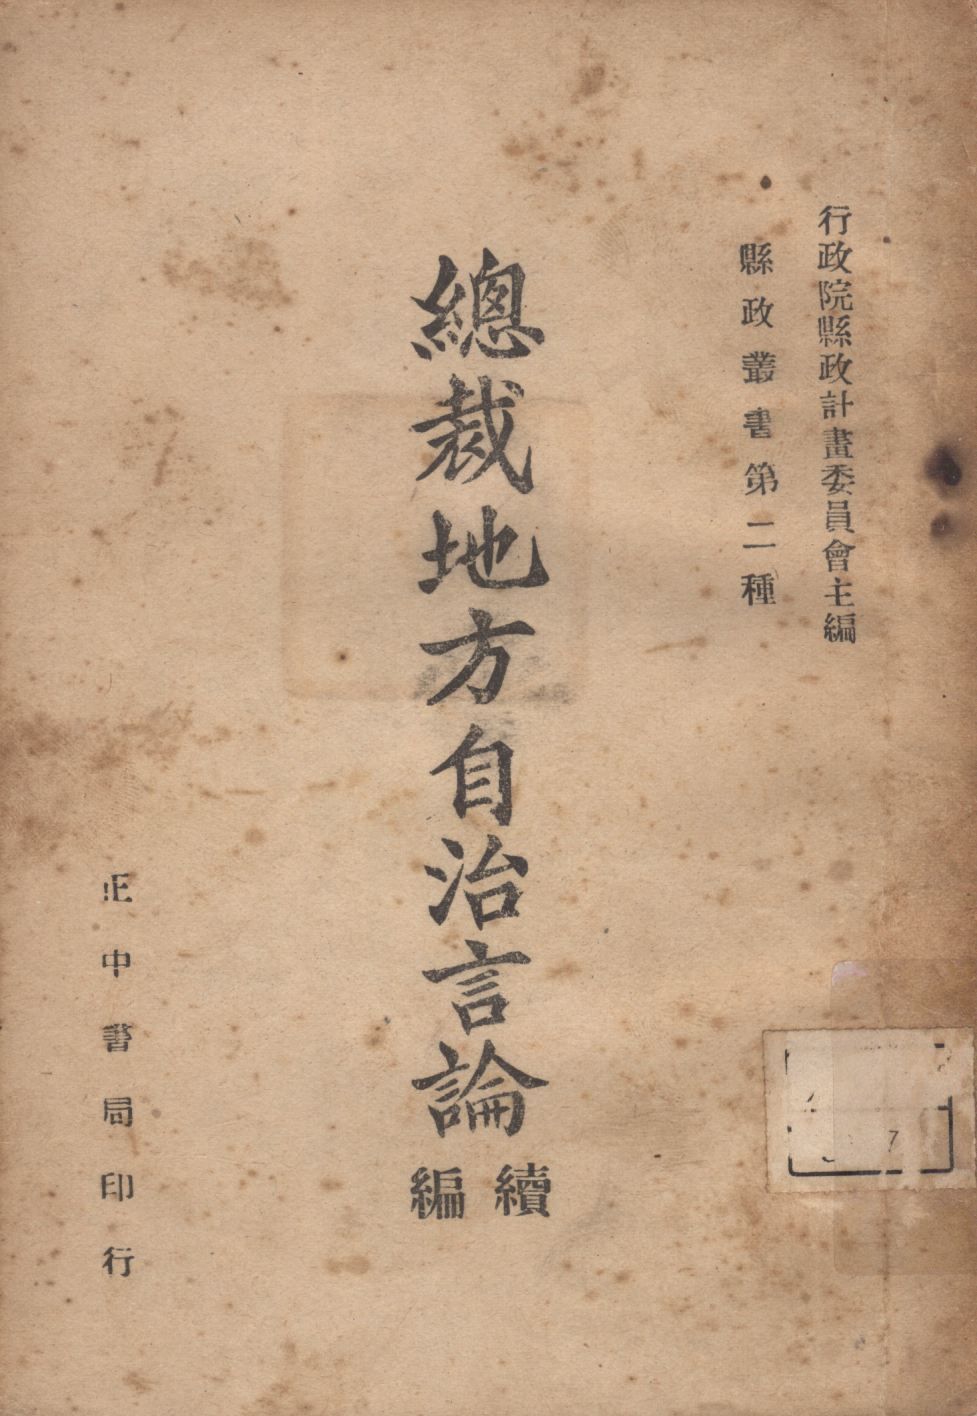 行政院縣政計畫委員會主編
縣政叢書第二種
總裁地方自治言論
續編
正中書局印行
7